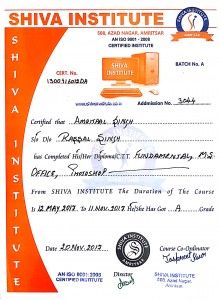 SHIVA INSTITUTE
500, AZAD NAGAR, AMRITSAR
AN ISO 9001 : 2008
CERTIFIED INSTITUTE
SHIVA INSTITUTE
SHIVA
INSTITUTE
BATCH No. A
CERT. No.
Admission No. 3064
Certified that Amritpal Singh
S/o D/o Rasaal Singh
has Completed His/Her Diploma/C.T.T. Fundamental, M.S.
Office, Photoshop
From SHIVA INSTITUTE The Duration of the Course
is 12 May 2017 To 11 Nov. 2017 He/She Has Got A Grade
Date 20 Nov. 2017
Director
Course Co-Ordinator
AN ISO 9001 : 2008
CERTIFIED INSTITUTE
SHIVA INSTITUTE
500, Azad Nagar,
Amritsar